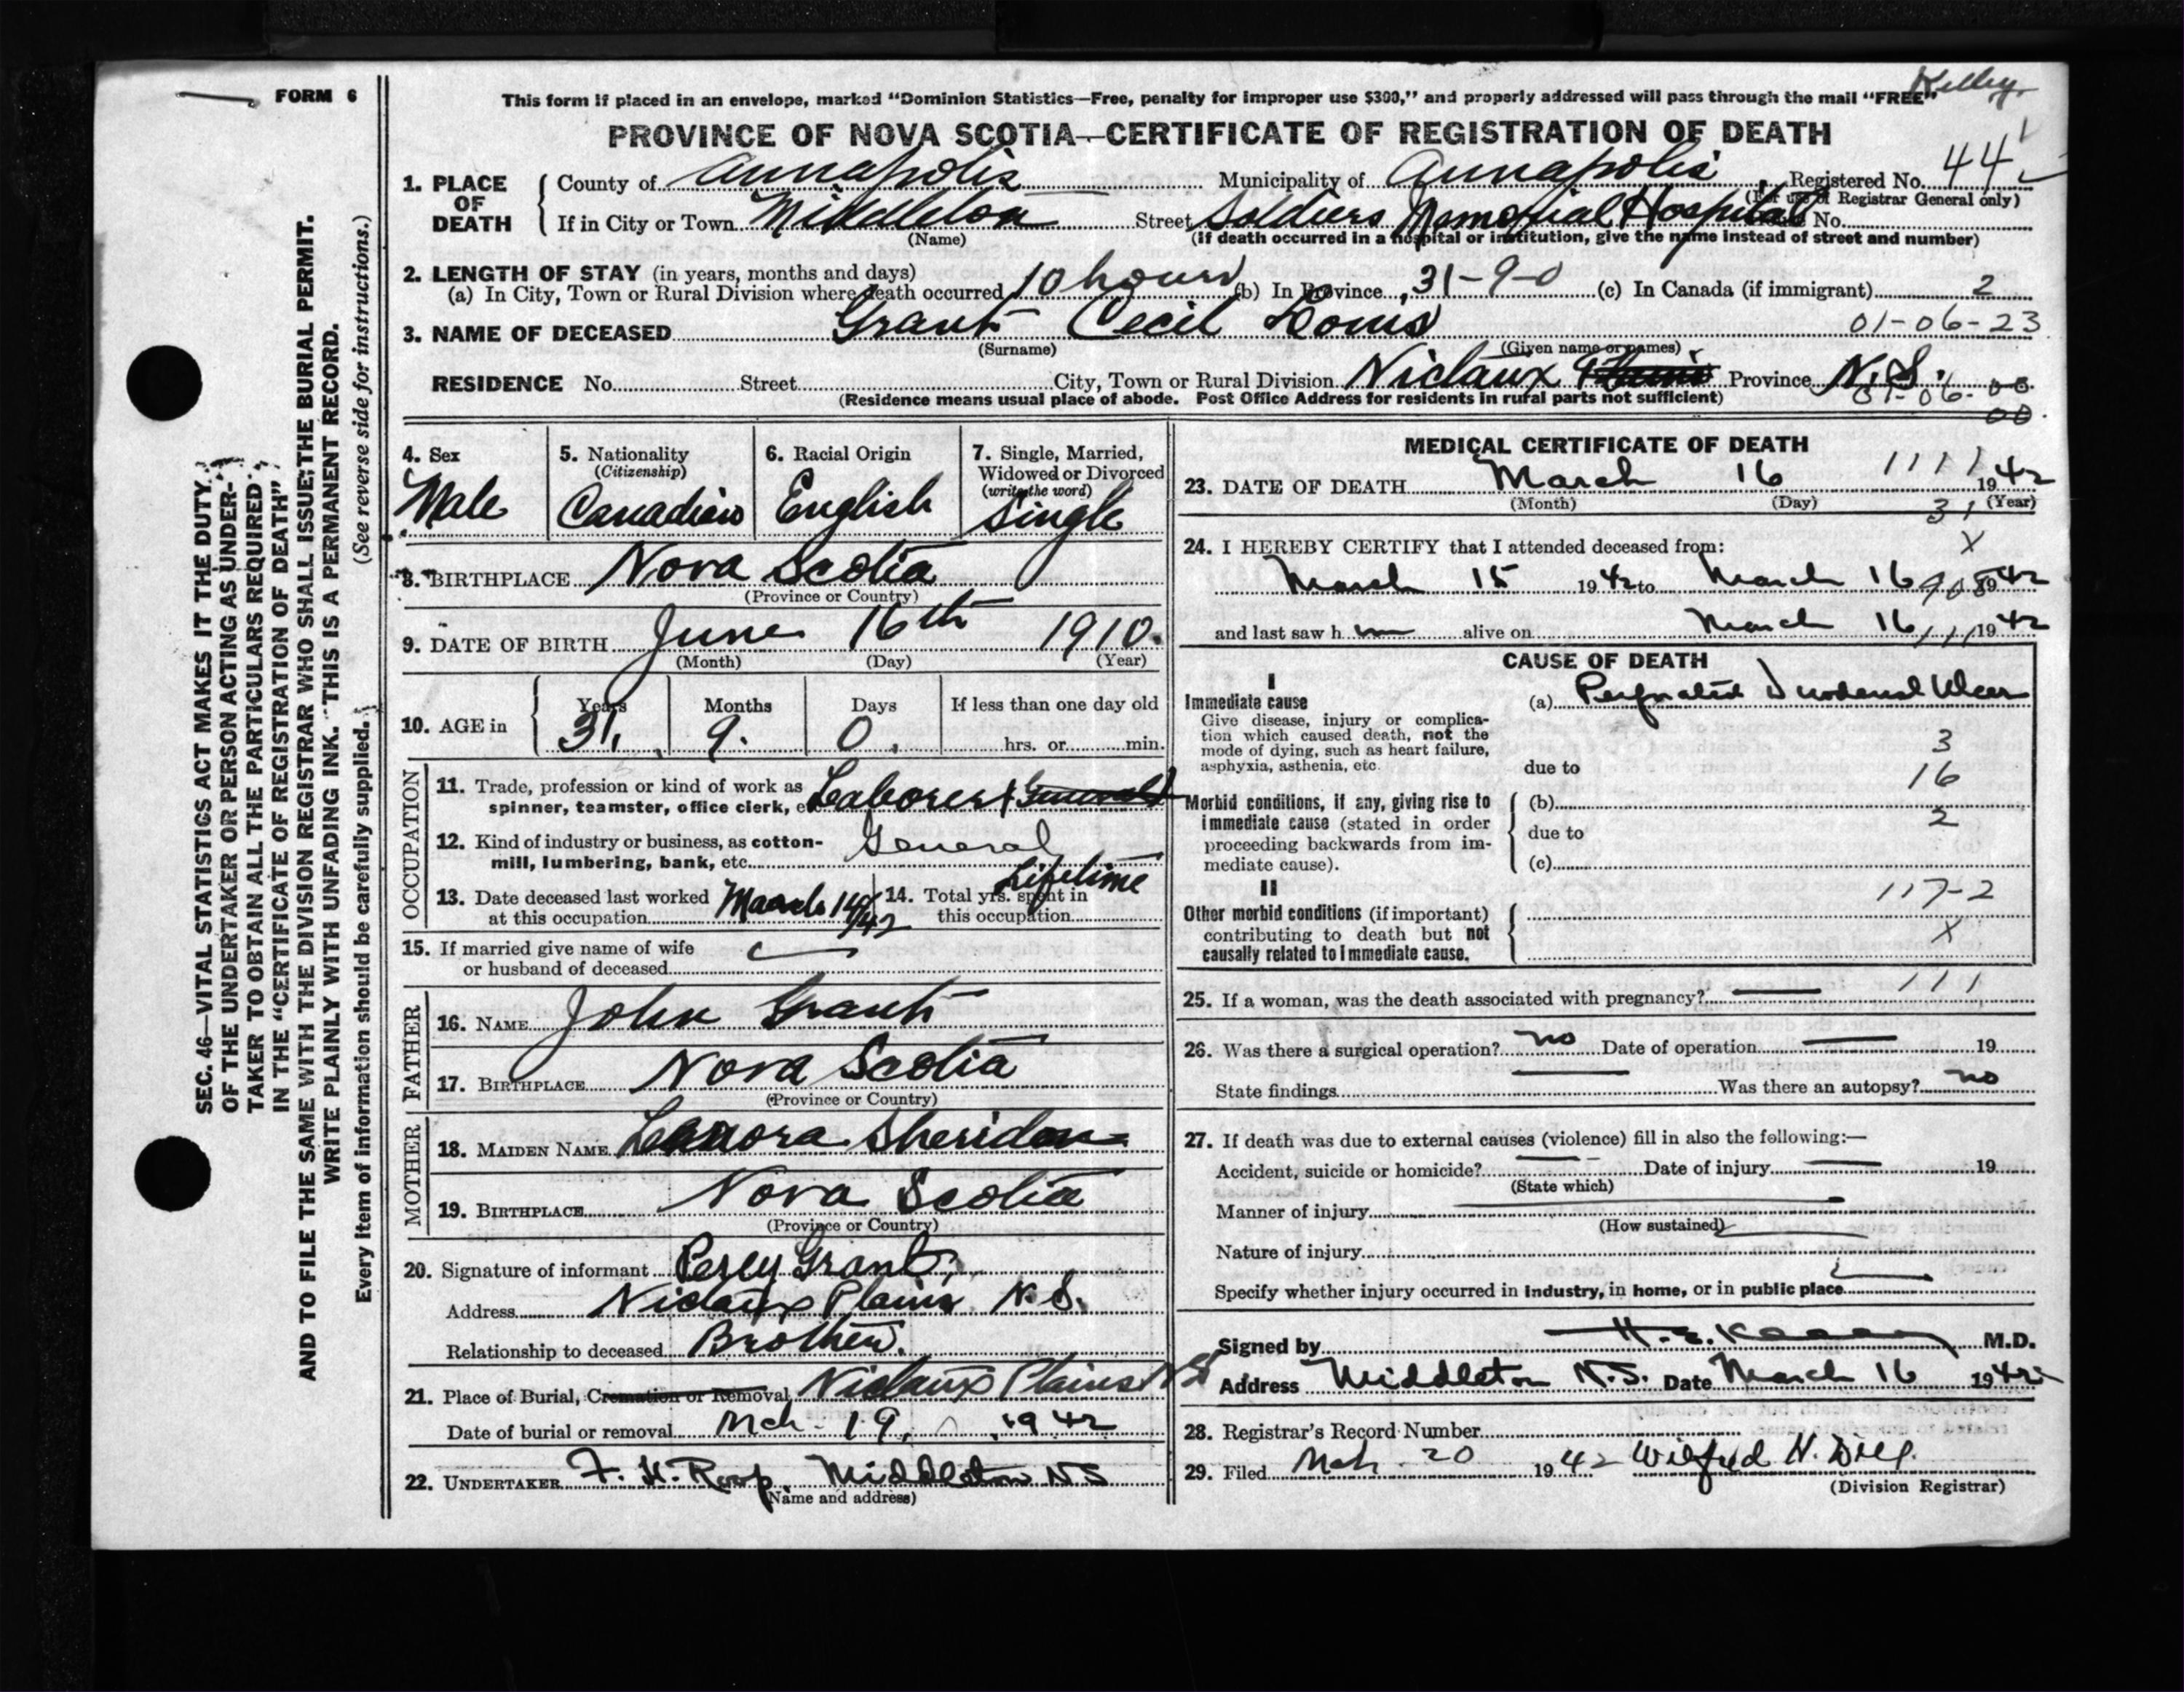 Kelley
FORM 6
This form if placed in an envelope, marked "Dominion Statistics—Free, penalty for improper use $300," and properly addressed will pass through the mail "FREE"
PROVINCE OF NOVA SCOTIA—CERTIFICATE OF REGISTRATION OF DEATH
1. PLACE OF DEATH
County of Annapolis Municipality of Annapolis Registered No. 442
(For use of Registrar General only)
If in City or Town Middleton Street Soldiers Memorial Hospital No.
(Name) (If death occurred in a hospital or institution, give the name instead of street and number)
2. LENGTH OF STAY (in years, months and days)
(a) In City, Town or Rural Division where death occurred 10 hours (b) In Province 31-9-0 (c) In Canada (if immigrant) 2
3. NAME OF DECEASED Grant Cecil Louis 01-06-23
(Surname) (Given name or names)
RESIDENCE No. Street City, Town or Rural Division Nictaux Plains Province N.S. 01-06-00
00
(Residence means usual place of abode. Post Office Address for residents in rural parts not sufficient)
4. Sex
Male
5. Nationality
(Citizenship)
Canadian
6. Racial Origin
English
7. Single, Married, Widowed or Divorced
(write the word)
Single
8. BIRTHPLACE Nova Scotia
(Province or Country)
9. DATE OF BIRTH June 16th 1910.
(Month) (Day) (Year)
10. AGE in
Years Months Days If less than one day old
31. 9. 0. hrs. or min.
OCCUPATION
11. Trade, profession or kind of work as
spinner, teamster, office clerk, etc. Laborer General
12. Kind of industry or business, as cotton-
mill, lumbering, bank, etc. General
13. Date deceased last worked
at this occupation March 14/42
14. Total yrs. spent in
this occupation Lifetime
15. If married give name of wife
or husband of deceased
FATHER
16. NAME John Grant
17. BIRTHPLACE Nova Scotia
(Province or Country)
MOTHER
18. MAIDEN NAME Leanora Sheridan
19. BIRTHPLACE Nova Scotia
(Province or Country)
20. Signature of informant Percy Grant
Address Nictaux Plains N.S.
Relationship to deceased Brother.
21. Place of Burial, Cremation or Removal Nictaux Plains NS
Date of burial or removal Mch. 19, 1942
22. UNDERTAKER F. H. Roop Middleton NS
Name and address)
MEDICAL CERTIFICATE OF DEATH
1111
23. DATE OF DEATH March 16 1942
(Month) (Day) (Year)
31
24. I HEREBY CERTIFY that I attended deceased from:
X
March 15 1942 to March 16 1942
908
and last saw h im alive on March 16 1942
111
CAUSE OF DEATH
I
Immediate cause
Give disease, injury or complica-
tion which caused death, not the
mode of dying, such as heart failure,
asphyxia, asthenia, etc.
(a) Perforated Duodenal Ulcer
3
due to
16
Morbid conditions, if any, giving rise to
immediate cause (stated in order
proceeding backwards from im-
mediate cause).
(b)
2
due to
(c)
II
117-2
Other morbid conditions (if important)
contributing to death but not
causally related to immediate cause.
X
111
25. If a woman, was the death associated with pregnancy?
26. Was there a surgical operation? no Date of operation 19
State findings Was there an autopsy? no
27. If death was due to external causes (violence) fill in also the following:—
Accident, suicide or homicide? Date of injury 19
(State which)
Manner of injury
(How sustained)
Nature of injury
Specify whether injury occurred in industry, in home, or in public place
Signed by M.D.
Address Middleton N.S. Date March 16 1942
28. Registrar's Record Number
29. Filed Mch. 20 1942
(Division Registrar)
SEC. 46—VITAL STATISTICS ACT MAKES IT THE DUTY
OF THE UNDERTAKER OR PERSON ACTING AS UNDER-
TAKER TO OBTAIN ALL THE PARTICULARS REQUIRED
IN THE "CERTIFICATE OF REGISTRATION OF DEATH"
AND TO FILE THE SAME WITH THE DIVISION REGISTRAR WHO SHALL ISSUE THE BURIAL PERMIT.
WRITE PLAINLY WITH UNFADING INK. THIS IS A PERMANENT RECORD.
Every item of information should be carefully supplied. (See reverse side for instructions.)